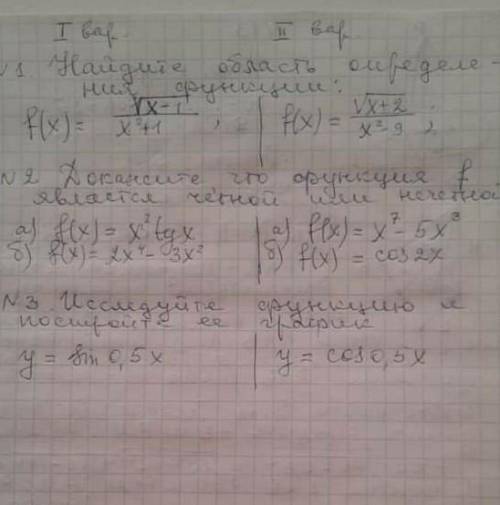 I вар. II вар.
№1 Найдите область определе-
ния функции:
f(x) = √x-1 / x²+1 , f(x) = √x+2 / x²-9 ;
№2 Докажите что функция f
является чётной или нечетной
а) f(x) = x² tg x а) f(x) = x⁷ - 5x³
б) f(x) = 2x⁴ - 3x² б) f(x) = cos 2x
№3 Исследуйте функцию и
постройте ее график
y = sin 0,5x y = cos 0,5x